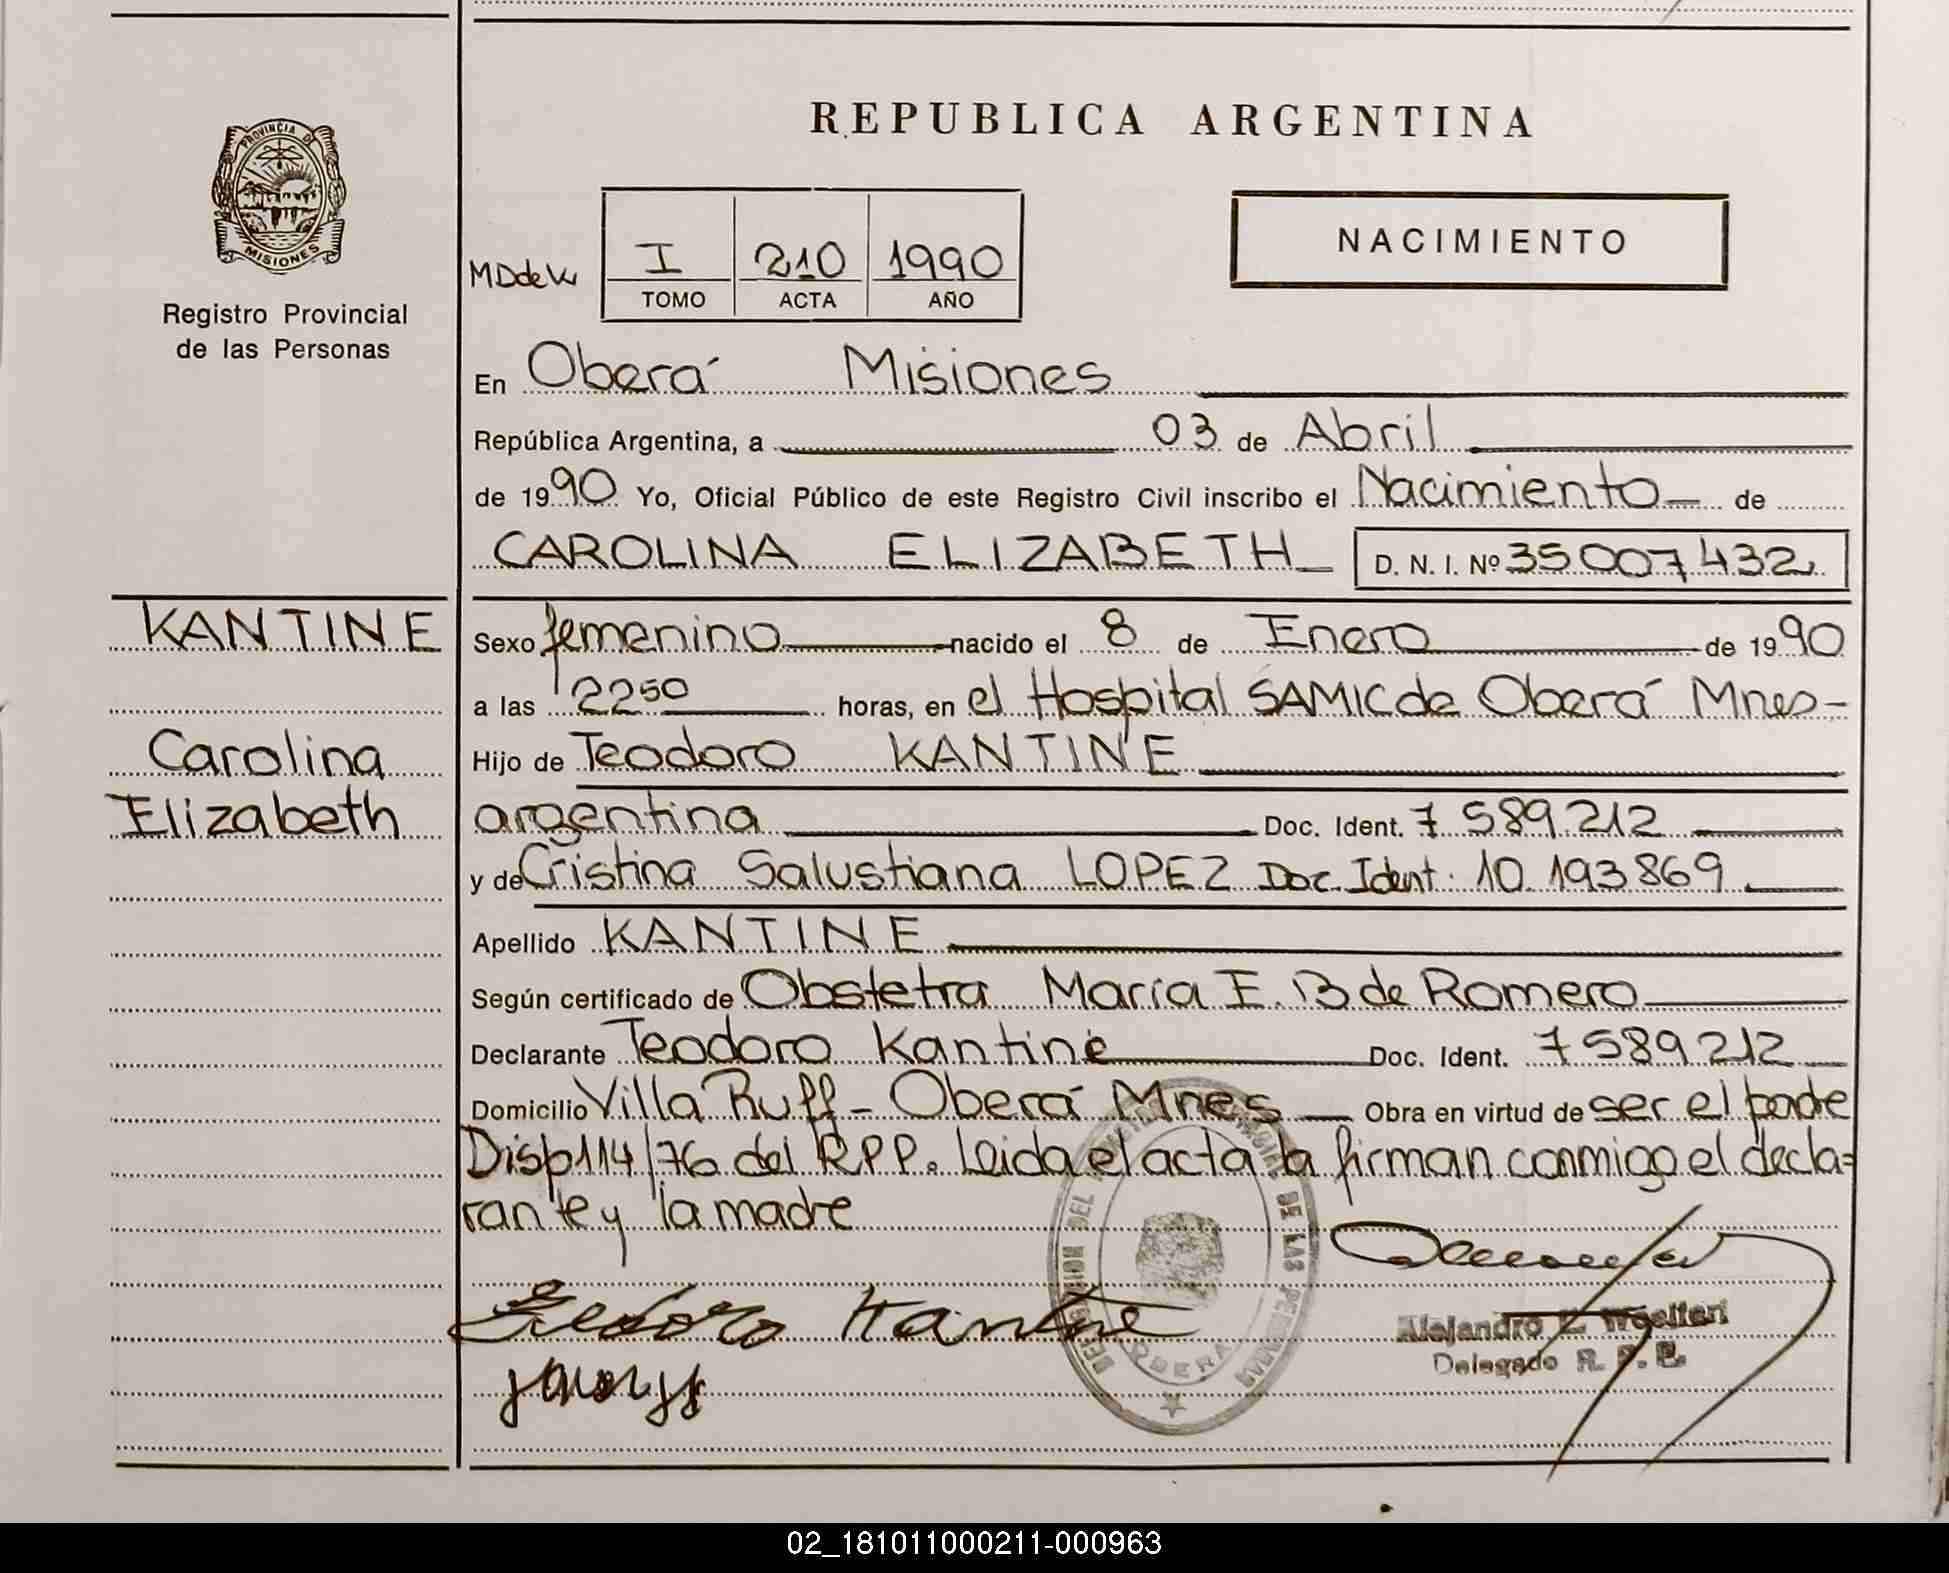 REPUBLICA ARGENTINA
PROVINCIA DE
MISIONES
Registro Provincial
de las Personas
NACIMIENTO
I 210 1990
TOMO ACTA AÑO
En Oberá Misiones
República Argentina, a 03 de Abril
de 1990 Yo, Oficial Público de este Registro Civil inscribo el Nacimiento de
CAROLINA ELIZABETH D. N. I. Nº 35007432
KANTINE
Carolina
Elizabeth
Sexo femenino nacido el 8 de Enero de 1990
a las 22 50 horas, en el Hospital SAMIC de Oberá Mnes-
Hijo de Teodoro KANTINE
argentina Doc. Ident. 7 589.212
y de Cristina Salustiana LOPEZ Doc. Ident. 10.193.869
Apellido KANTINE
Según certificado de Obstetra María E. B de Romero
Declarante Teodoro Kantine Doc. Ident. 7 589.212
Domicilio Villa Ruff - Oberá Mnes Obra en virtud de ser el padre
Disp 114/76 del R.P.P. Leida el acta la firman conmigo el decla=
rante y la madre
Teodoro Kantine
DE LAS PERSONAS
OBERA
Delegado R. P. P.
02_181011000211-000963